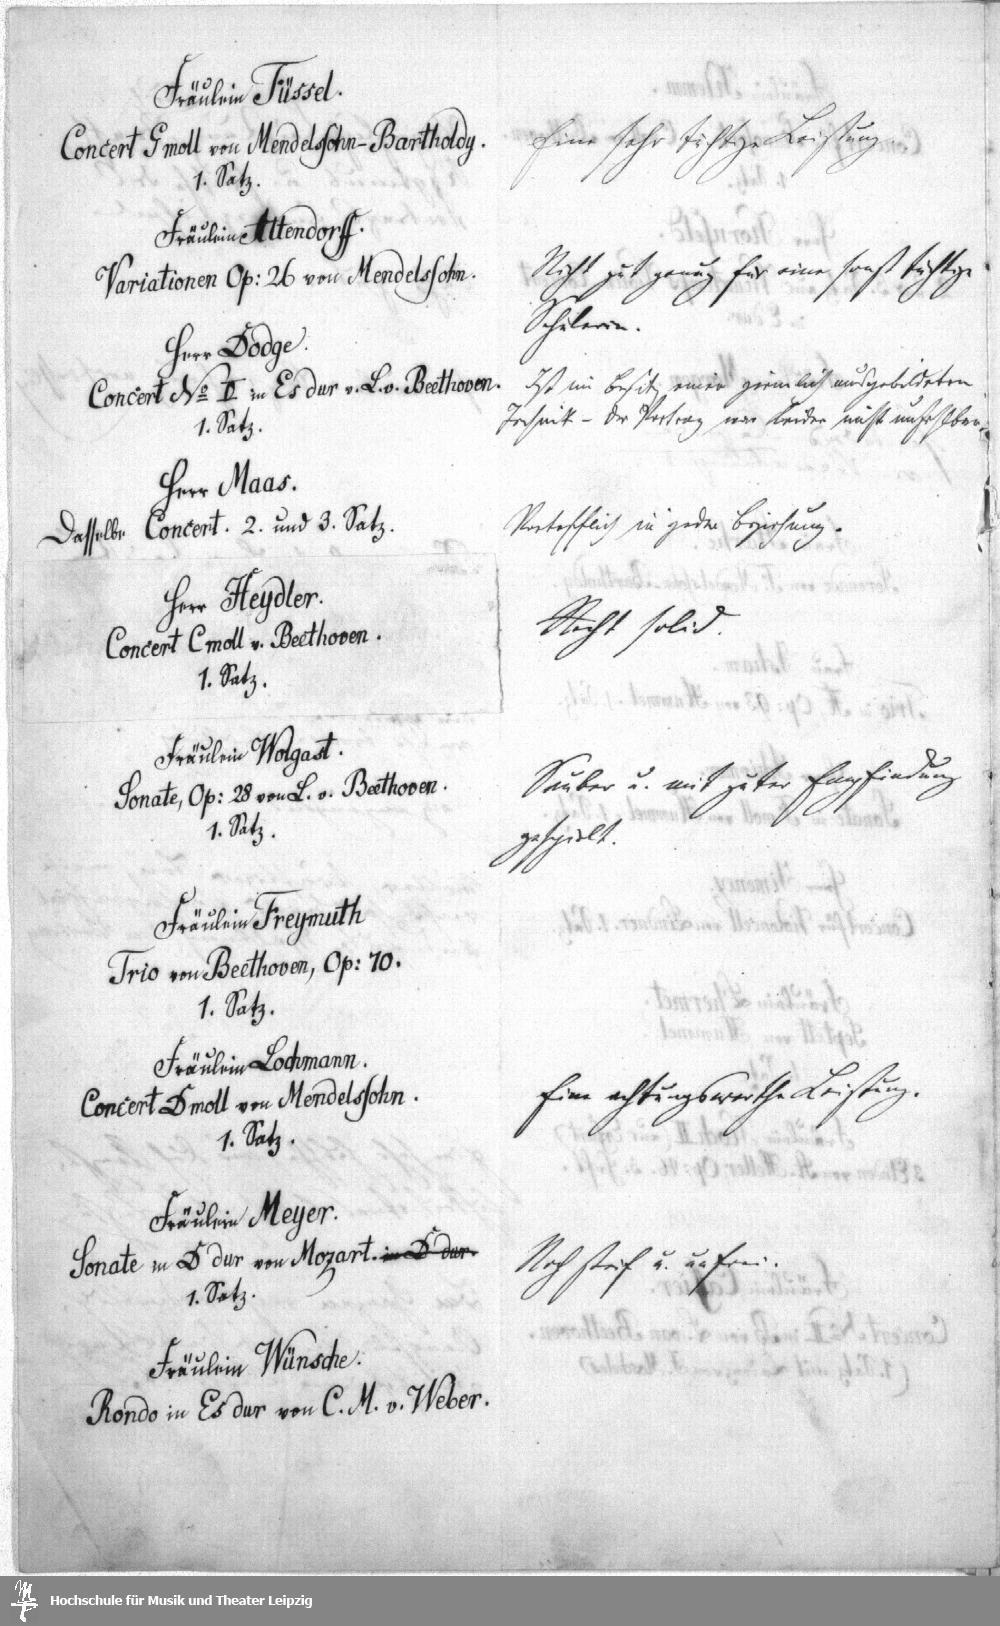 Fräulein Füssel.
Concert G moll von Mendelssohn-Bartholdy.
1. Satz.
Eine sehr tüchtige Leistung
Fräulein Attendorff.
Variationen Op: 26 von Mendelssohn.
Nicht gut genug für eine sonst tüchtige
Schülerin.
Herr Dodge.
Concert No in Es dur v. L. v. Beethoven.
1. Satz.
Ist im Besitz einer ziemlich ausgebildeten
Technik – der Vortrag war leider nicht
Herr Maas.
Dasselbe Concert. 2. und 3. Satz.
Vortrefflich in jeder Beziehung.
Herr Heydler.
Concert C moll v. Beethoven.
1. Satz.
Recht solid.
Fräulein Wolgast.
Sonate, Op: 28 von L. v. Beethoven.
1. Satz.
Sauber u. mit guter Empfindung
gespielt.
Fräulein Freymuth
Trio von Beethoven, Op: 70.
1. Satz.
Fräulein Lochmann.
Concert D moll von Mendelssohn.
1. Satz.
Eine achtungswerthe Leistung.
Fräulein Meyer.
Sonate in D dur von Mozart. in D dur.
1. Satz.
Noch steif u. unfrei.
Fräulein Wünsche.
Rondo in Es dur von C. M. v. Weber.
Hochschule für Musik und Theater Leipzig